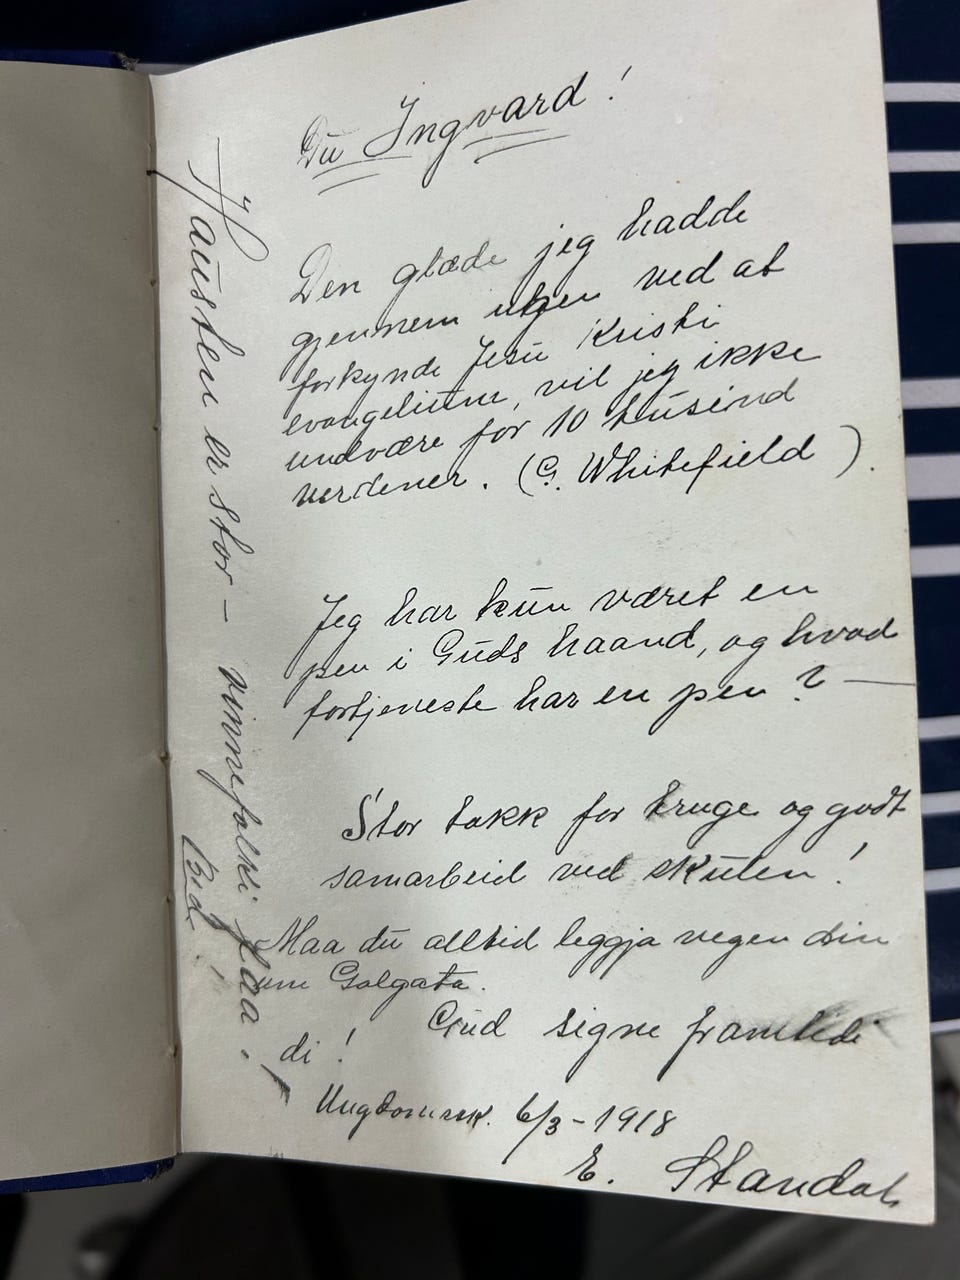 Du Ingvard!
Den glæde jeg hadde
gjennem ved at
forkynde Jesu Kristi
evangelium, vil jeg ikke
undvære for 10 tusind
verdener. (G. Whitefield).
Jeg har kun været en
pen i Guds haand, og hvad
fortjeneste har en pen? —
Stor takk for truge og godt
samarbeid ved skulen!
Maa du alltid leggja vegen din
um Golgata.
Gud signe framtidi
di!
Ungdomssk. 6/3 - 1918
E. Standal
Hausten er stor — vinnefolki faa!
Bed!